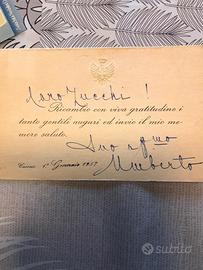 Caro Zucchi!
Ricambio con viva gratitudine i
tanto gentili auguri ed invio il mio me-
more saluto.
Suo affmo
Umberto
Cascais 1° Gennaio 1957
subito